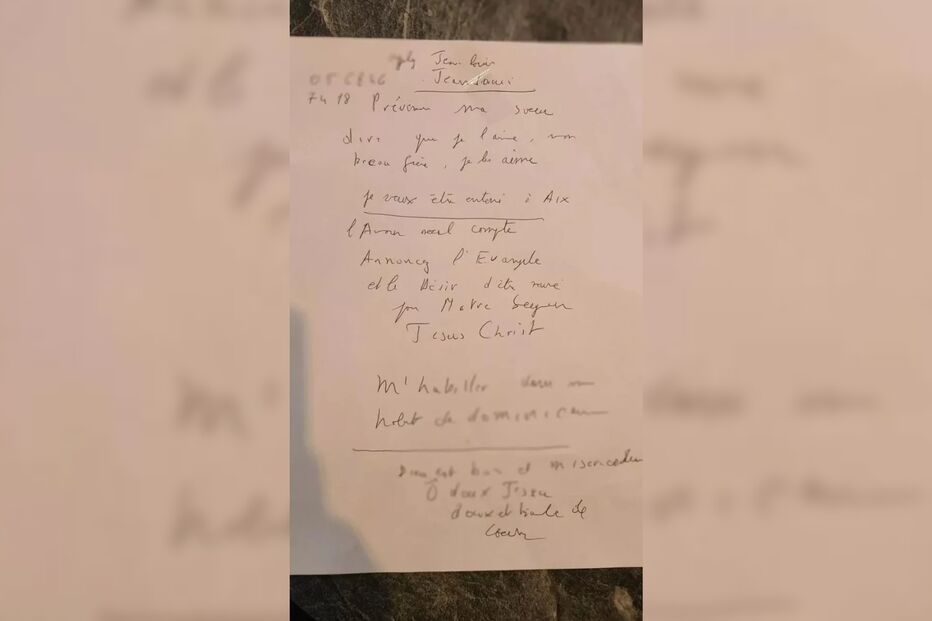 Jean Louis
Prévenir ma soeur
dire que je l'aime, mon
beau frère, je les aime
je veux être enterré à Aix
l'Amour seul compte
Annoncez l'Evangile
et le Désir d'être
par Notre Seigneur
Jesus Christ
M'habiller dans un
habit de dominicain
Dieu est bon et
Ô doux Jésus
doux et humble de
coeur